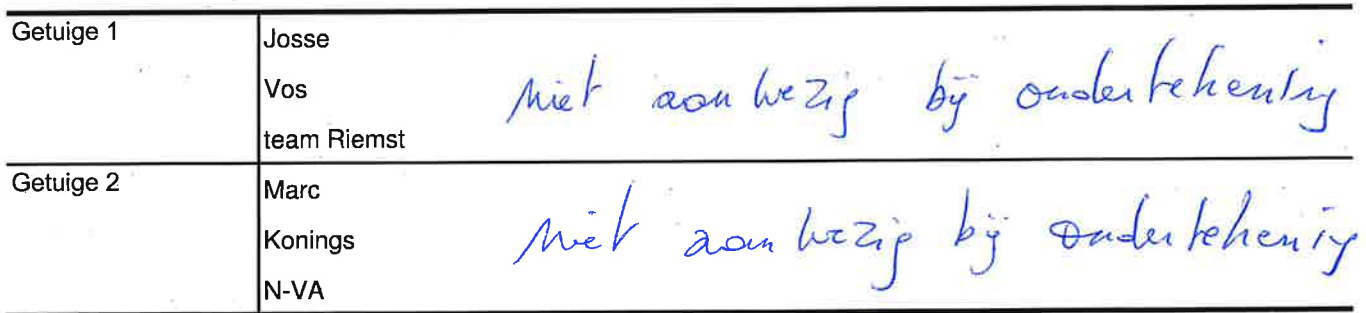 Getuige 1
Josse
Vos
team Riemst
niet aanwezig bij ondertekening
Getuige 2
Marc
Konings
N-VA
niet aanwezig bij ondertekening